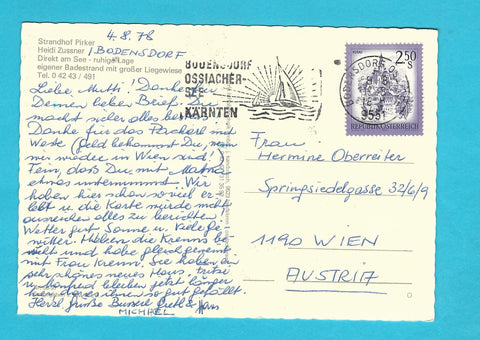 4.8.78
Strandhof Pirker
Heidi Zussner / BODENSDORF
Direkt am See - ruhige Lage
eigener Badestrand mit großer Liegewiese
Tel. 0 42 43 / 491
Liebe Mutti! Danke für
Deinen lieben Brief. Du
machst sicher alles bestens.
Danke für das Packerl mit
Wäsche (Geld bekommst Du, wenn
wir wieder in Wien sind!)
Fein, dass Du mit
etwas unternimmst. Wir
haben hier schon so viel er-
lebt u. die Karte würde nicht
ausreichen alles zu berichten!
Wetter gut Sonne u. viele Ge-
witter. Haben die Krenns be-
sucht und habe gleich gegeigt
mit Frau Krenn. Sie haben ein
sehr schönes neues Haus.
u. Manfred bleiben jetzt länger
hier, da es ihnen so gut gefällt.
Herzl. Grüße Bussi Gretl & Hans
MICHAEL
BODENSDORF
OSSIACHER-
SEE
KÄRNTEN
BODENSDORF
9551
2.50
S
REPUBLIK ÖSTERREICH
Frau
Hermine Oberreiter
Springsiedelgasse 32/6/9
1190 WIEN
AUSTRIA